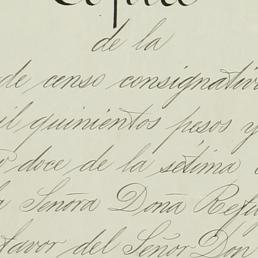 Copia
de la
de censo consignativo
il quinientos pesos y
doce de la sétima
a Señora Doña Refu
favor del Señor Don